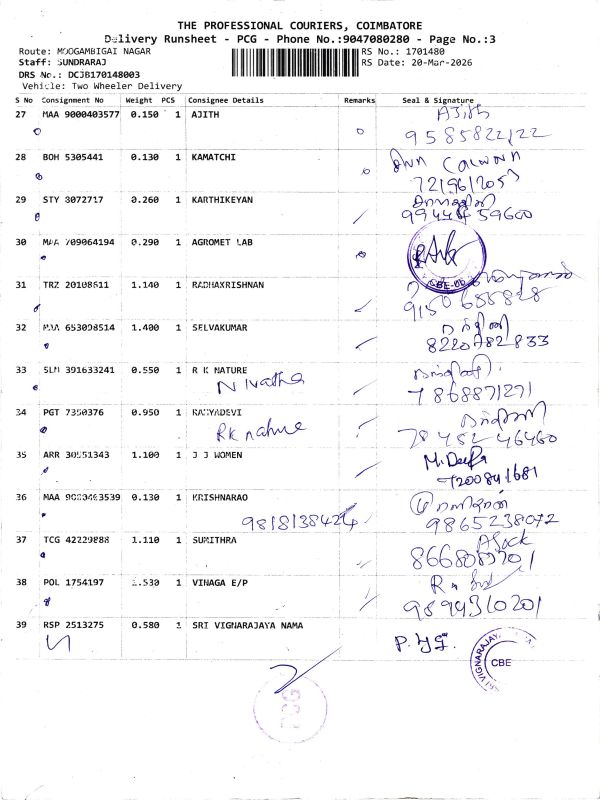 THE PROFESSIONAL COURIERS, COIMBATORE
Delivery Runsheet - PCG - Phone No.:9047080280 - Page No.:3
Route: MOOGAMBIGAI NAGAR RS No.: 1701480
Staff: SUNDRARAJ RS Date: 20-Mar-2026
DRS No.: DCJB170148003
Vehicle: Two Wheeler Delivery
S No Consignment No Weight PCS Consignee Details Remarks Seal & Signature
27 MAA 9000403577 0.150 1 AJITH Ajith
9585822122
28 BOH 5305441 0.130 1 KAMATCHI
7219617053
29 STY 3072717 0.260 1 KARTHIKEYAN
9944459600
30 MAA 709064194 0.290 1 AGROMET LAB
31 TRZ 20108611 1.140 1 RADHAKRISHNAN
9150688828
32 MAA 653098514 1.400 1 SELVAKUMAR
8220782833
33 SLM 391633241 0.550 1 R K NATURE
Nivatha 7868871271
34 PGT 7350376 0.950 1 RAMYADEVI
RK nature 78452 46460
35 ARR 30951343 1.100 1 J J WOMEN M. Deepa
7200841681
36 MAA 9000403539 0.130 1 KRISHNARAO
9818138424 9865238072
37 TCG 42229888 1.110 1 SUMITHRA Asock
38 POL 1754197 1.530 1 VINAGA E/P
9894310201
39 RSP 2513275 0.580 1 SRI VIGNARAJAYA NAMA
CBE
PCG